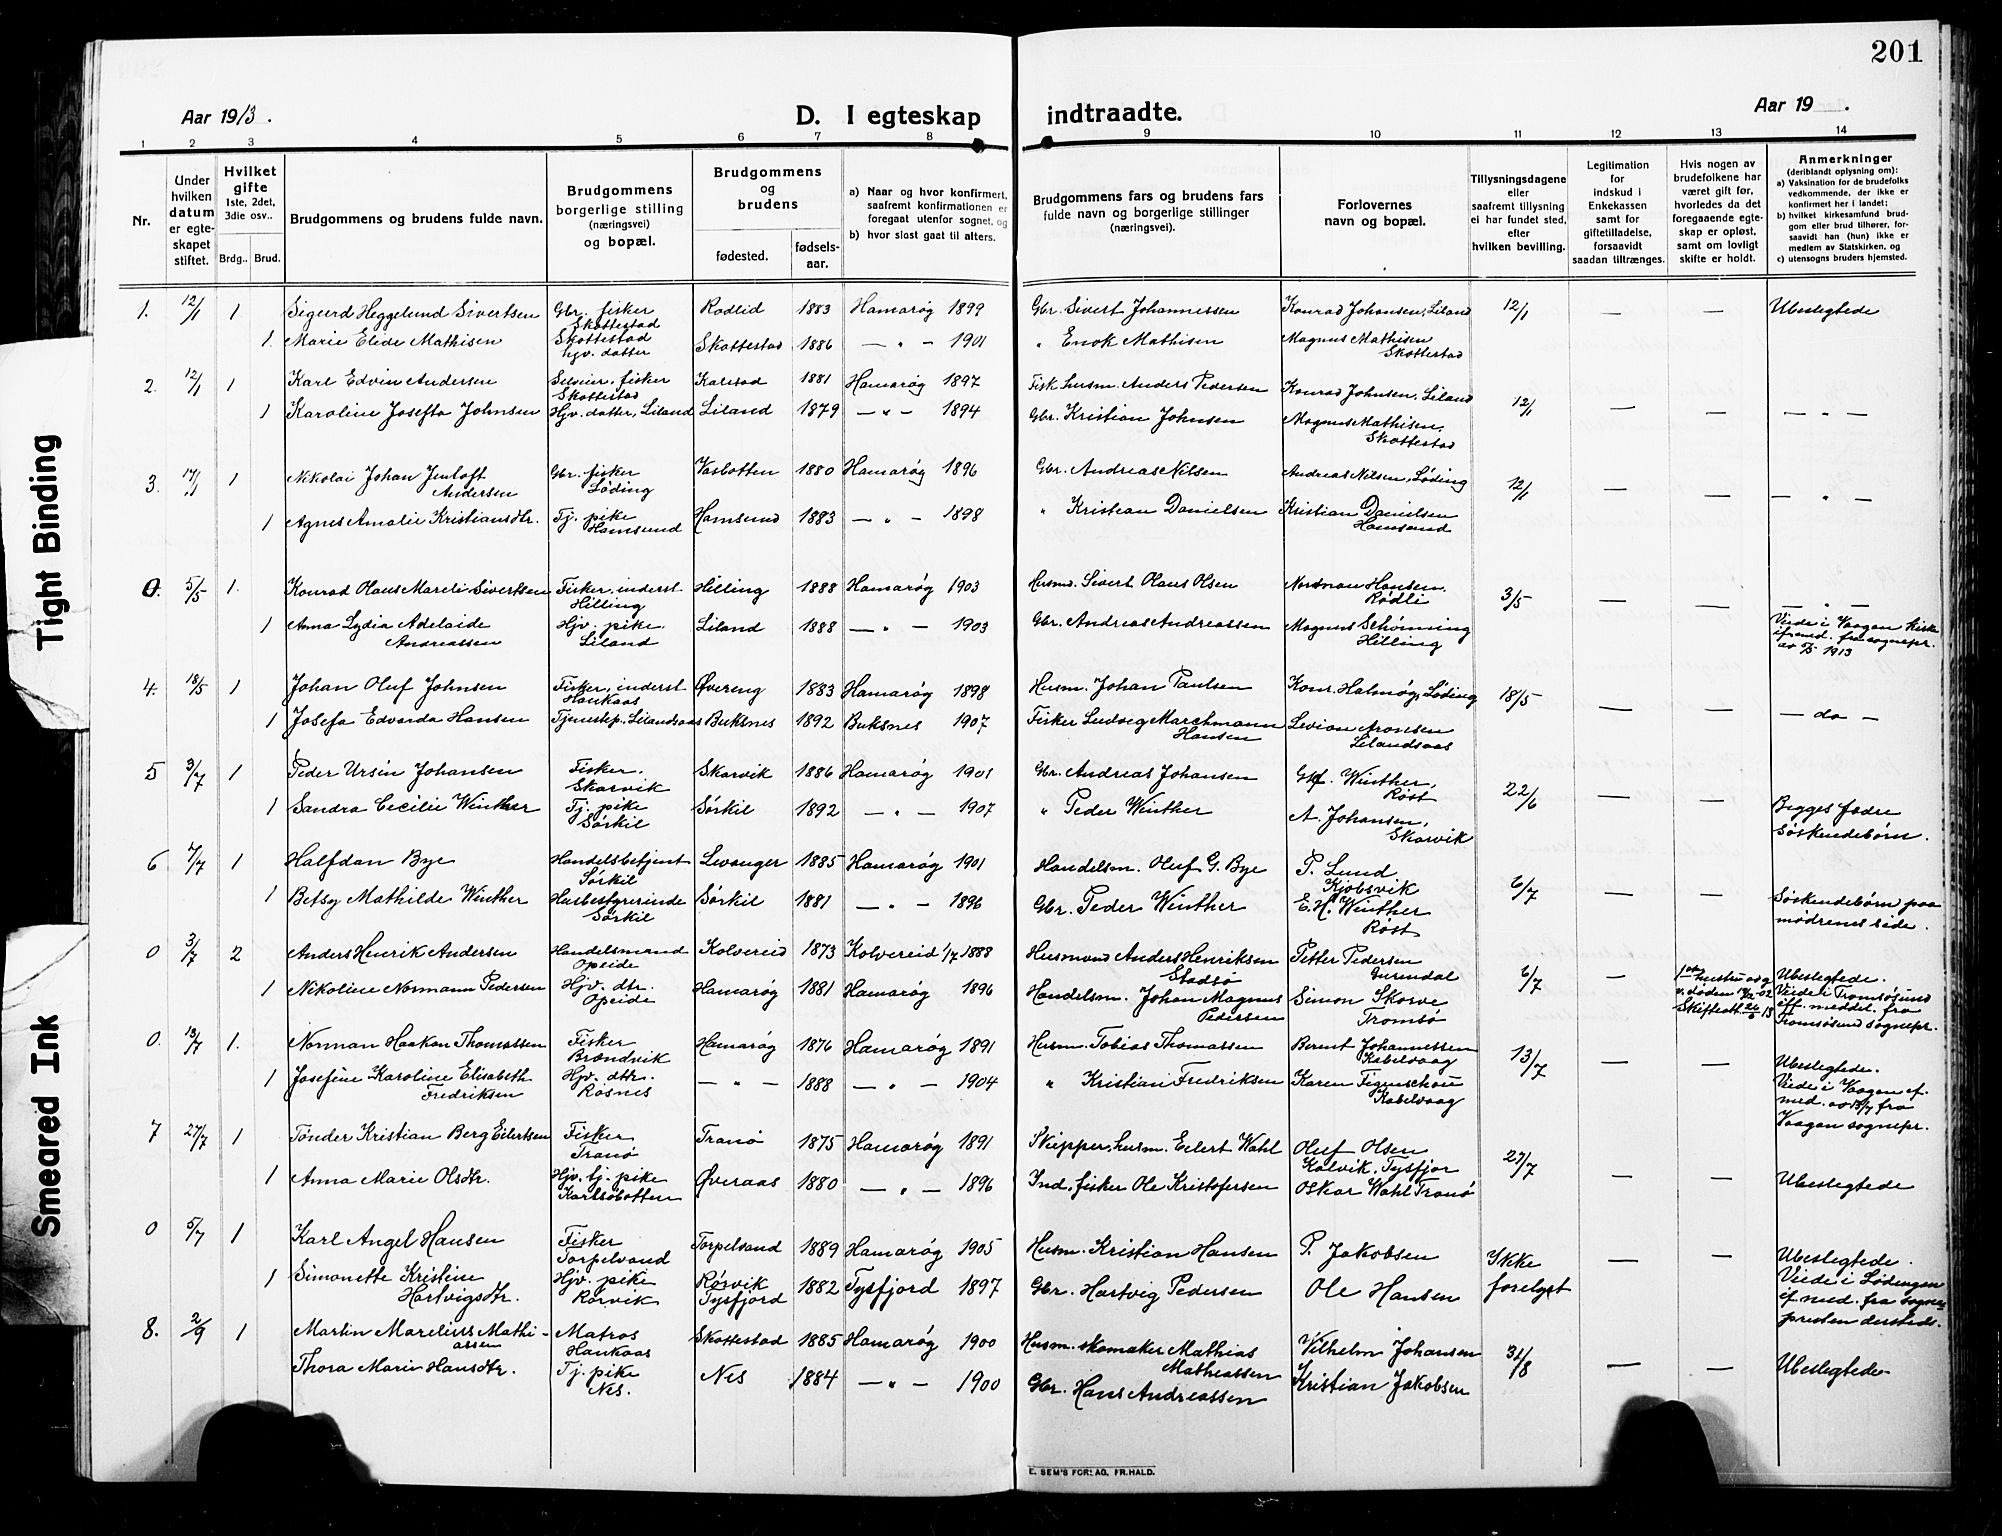 201
Aar 1913.
D. I egteskap
indtraadte.
Aar 19 .
1 2 3 4 5 6 7 8 9 10 11 12 13 14
Nr.
Under hvilken datum er egteskapet stiftet.
Hvilket gifte 1ste, 2det, 3die osv..
Brdg.. Brud.
Brudgommens og brudens fulde navn.
Brudgommens borgerlige stilling (næringsvei) og bopæl.
Brudgommens og brudens
fødested. fødsels-aar.
a) Naar og hvor konfirmert, saafremt konfirmationen er foregaat utenfor sognet, og
b) hvor sidst gaat til alters.
Brudgommens fars og brudens fars fulde navn og borgerlige stillinger (næringsvei).
Forlovernes navn og bopæl.
Tillysningsdagene eller saafremt tillysning ei har fundet sted, efter hvilken bevilling.
Legitimation for indskud i Enkekassen samt for giftetilladelse, forsaavidt saadan tiltrænges.
Hvis nogen av brudefolkene har været gift før, hvorledes da det foregaaende egteskap er opløst, samt om lovligt skifte er holdt.
Anmerkninger (deriblandt oplysning om):
a) Vaksination for de brudefolks vedkommende, der ikke er konfirmert her i landet;
b) hvilket kirkesamfund brudgom eller brud tilhører, forsaavidt han (hun) ikke er medlem av Statskirken, og
c) utensogns bruders hjemsted.
1. 12/1 1 Sigurd Heggelund Sivertsen Gbr. fisker Skottestad Rodlid 1883 Hamarøg 1899 Gbr. Sivert Johannessen Konrad Johansen, Liland 12/1 — — Ubeslegtede
1 Marie Elide Mathisen Skottestad hgv. datter Skottestad 1886 — " — 1901 " Enok Mathisen Magnus Mathisen Skottestad
2. 12/1 1 Karl Edvin Andersen Selveier, fisker Skottestad Karstad 1881 Hamarøg 1897 Fisk. husm. Anders Pedersen Konrad Johnsen, Liland 12/1 — — — " —
1 Karoline Josefta Johnsen Hjv. datter, Liland Liland 1879 — " — 1894 Gbr. Kristian Johnsen Magnus Mathisen, Skottestad
3. 17/1 1 Nikolai Johan Jentoft Andersen Gbr. fisker Løding Vasbotten 1880 Hamarøg 1896 Gbr. Andreas Nilsen Andreas Nilsen, Løding 12/1 — — — " —
1 Agnes Amalie Kristiansdtr. Tj. pike Hamsund Hamsund 1883 — " — 1898 " Kristian Danielsen Kristian Danielsen Hamsund
0. 5/5 1. Konrad Olaus Mareli Sivertsen Fisker, inderst Hilling Hilling 1888 Hamarøg 1903 Husm. Sivert Olaus Olsen Norman Hansen, Rødli 3/5 — — — " —
1 Anna Lydia Adelaide Andreassen Hjv. pike Liland Liland 1888 — " — 1903 Gbr. Andreas Andreassen Magnus Schønning Hilling Viede i Vaagan kirke if. med. fra sognepr. av 1913
4. 18/5 1 Johan Oluf Johnsen Fisker, inderst Haukaas Øvereng 1883 Hamarøg 1898 Husm. Johan Paulsen Konr. Halmøy, Løding 18/5 — — — do —
1 Josefa Edvarda Hansen Tjenestep. Lilandsaas Buksnes 1892 Buksnes 1907 Fisker Ludvig Marchmann Hansen Levion Aronsen Lilandsaas
5 3/7 1 Peder Ursin Johansen Fisker. Skarvik Skarvik 1886 Hamarøg 1901 Gbr. Andreas Johansen Winther, Røst 22/6 — —
1 Sandra Cecilie Winther Tj. pike Sørkil Sørkil 1892 — " — 1907 " Peder Winther A. Johansen, Skarvik Begges fædre Søskendebørn.
6 7/7 1 Halfdan Bye Handelsbetjent Sørkil Levanger 1885 Hamarøg 1901 Handelsm. Oluf G. Bye P. Lund Kjøbsvik 6/7 — —
1 Betsy Mathilde Winther Husbestyrerinde Sørkil Sørkil 1881 — " — 1896 Gbr. Peder Winther E. H. Winther Røst Søskendebørn paa mødrenes side.
0 3/7 2 Anders Henrik Andersen Handelsmand Opeide Kolvereid 1873 Kolvereid 1/7 1888 Husmand Anders Henriksen Stadsø Petter Pedersen Gurendal 6/7 — Ubeslegtede.
1 Nikoline Normann Pedersen Hjv. dtr. Opeide Hamarøg 1881 Hamarøg 1896 Handelsm. Johan Magnus Pedersen Simon Skarve Tromsø Viede i Tromsøsund eff. meddel. fra Tromsøsund sognepr.
0. 13/7 1. Norman Haakon Thomassen Fisker Brændvik Hamarøg 1876 Hamarøg 1891 Husm. Tobias Thomassen Bernt Johannessen Kabelvaag 13/7 — — Ubeslegtede.
1 Josefine Karoline Elisabeth Fredriksen Hjv. dtr. Røsnes — " — 1888 — " — 1904 " Kristian Fredriksen Karen Figenschou Kabelvaag Viede i Vaagan ef. med. av 15/7 fra Vaagan sognepr.
7 27/7 1 Tønder Kristian Berg Eilertsen Fisker Tranø Tranø 1875 Hamarøg 1891 Skipper, husm. Eilert Wahl Oluf Olsen Kalvik, Tysfjor 27/7 — — Ubeslegtede
1 Anna Marie Olsdtr. Hjv. tj. pike Karlsøbotten Øveraas 1880 — " — 1896 Ind. fisker Ole Kristofersen Oskar Wahl Tranø
0 5/7 1 Karl Angel Hansen Fisker Torpelsand Torpelsand 1889 Hamarøg 1905 Husm. Kristian Hansen P. Jakobsen Ikke forelyst — — Ubeslegtede.
1 Simonette Kristine Hartvigsdtr. Hjv. pike Rørvik Rørvik Tysfjord 1882 Tysfjord 1897 Gbr. Hartvig Pedersen Ole Hansen Viede i Lødingen ef. med. fra sognepresten dersteds.
8. 2/9 1 Martin Marelius Mathiassen Matros Haukaas Skottestad 1885 Hamarøg 1900 Husm. skomaker Mathias Matheassen Vilhelm Johansen 31/8 — — Ubeslegtede
Thora Marie Hansdtr. Tj. pike Nes. Nes 1884 — " — 1900 Gbr. Hans Andreassen Kristian Jakobsen
E. SEM'S FORLAG, FR.HALD.
Tight Binding
Smeared Ink